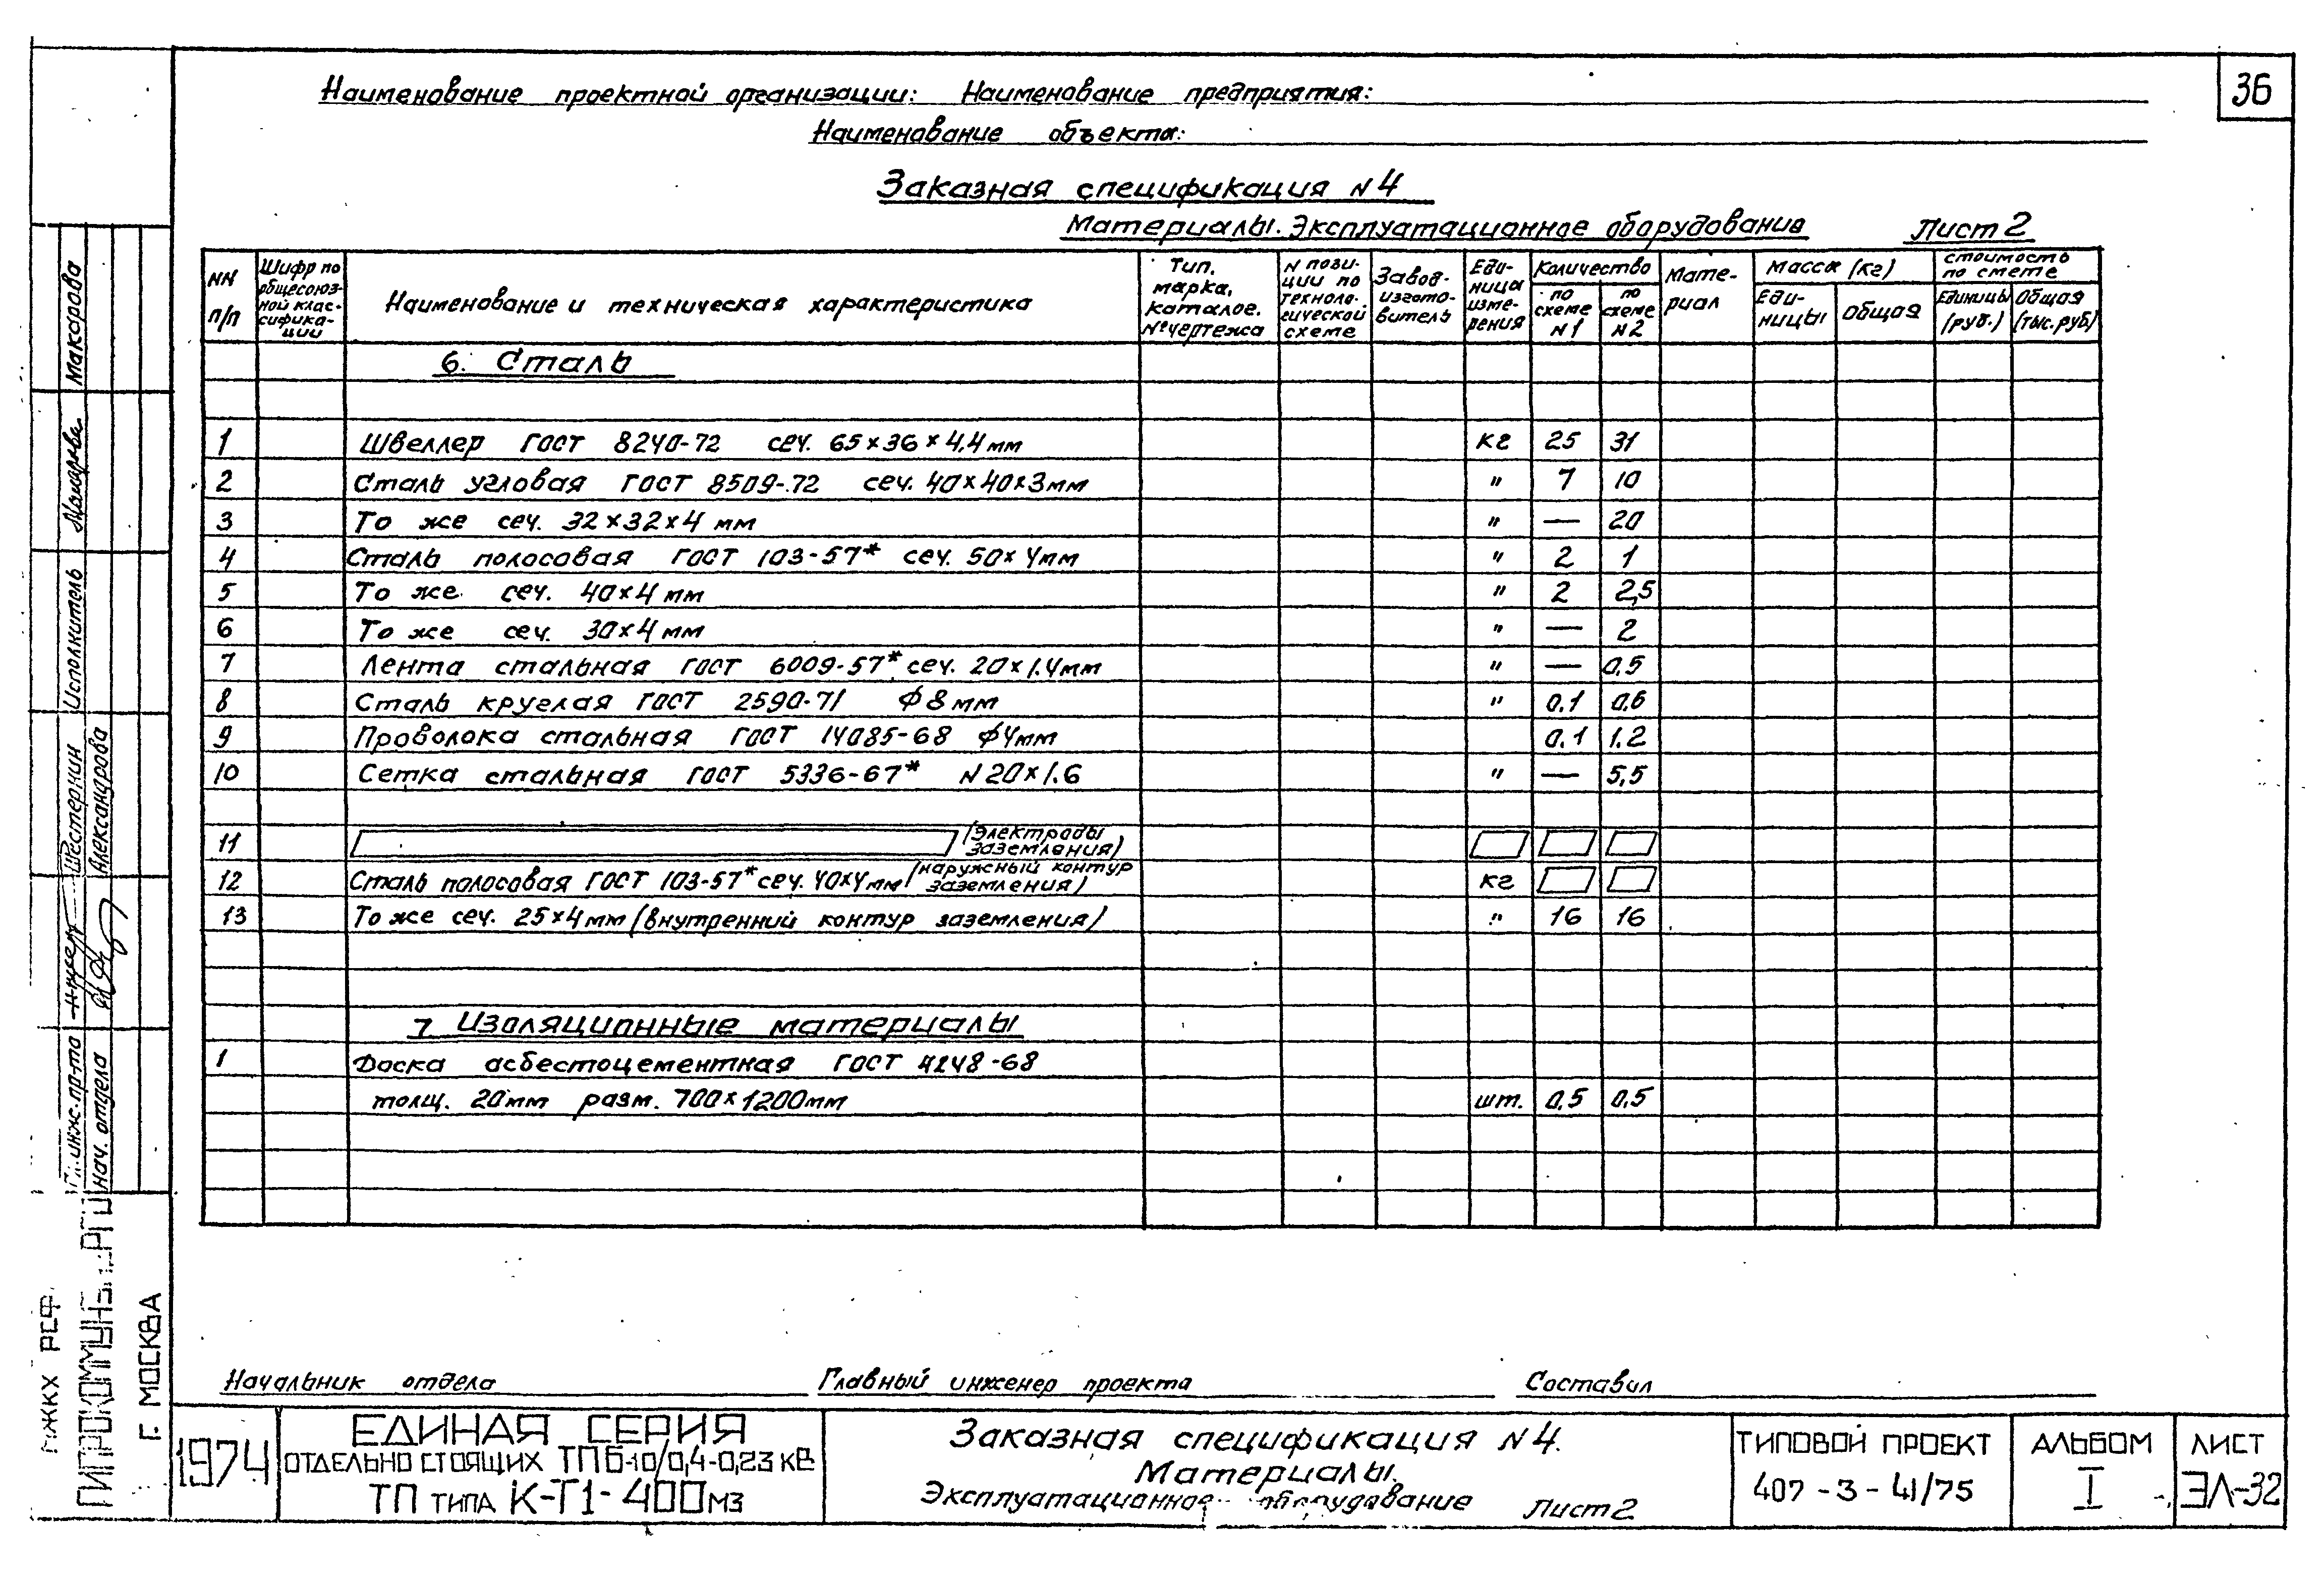 36
Наименование проектной организации: Наименование предприятия:
Наименование объекта:
Заказная спецификация N4
Материалы. Эксплуатационное оборудование Лист 2
NN п/п
Шифр по общесоюз-ной клас-сифика-ции
Наименование и техническая характеристика
Тип, марка, каталог. №чертежа
N пози-ции по техноло-гической схеме
Завод-изгото-витель
Еди-ница изме-рения
Количество
по схеме N1
по схеме N2
Мате-риал
Масса (кг)
Еди-ницы
Общая
Стоимость по смете
Единицы (руб.)
Общая (тыс.руб)
6. Сталь
1 Швеллер ГОСТ 8240-72 сеч. 65×36×4,4мм кг 25 31
2 Сталь угловая ГОСТ 8509-72 сеч. 40×40×3мм " 7 10
3 То же сеч. 32×32×4 мм " — 20
4 Сталь полосовая ГОСТ 103-57* сеч. 50×4мм " 2 1
5 То же сеч. 40×4 мм " 2 2,5
6 То же сеч. 30×4 мм " — 2
7 Лента стальная ГОСТ 6009-57* сеч. 20×1.4мм " — 0,5
8 Сталь круглая ГОСТ 2590-71 ϕ8мм " 0,1 0,6
9 Проволока стальная ГОСТ 14085-68 ϕ4мм 0,1 1.2
10 Сетка стальная ГОСТ 5336-67* N20×1.6 " — 5,5
11 (Электроды заземления)
12 Сталь полосовая ГОСТ 103-57* сеч. 40×4мм (наружный контур заземления) кг
13 То же сеч. 25×4мм (внутренний контур заземления) " 16 16
7 Изоляционные материалы
1 Доска асбестоцементная ГОСТ 4248-68
толщ. 20мм разм. 700×1200мм шт. 0,5 0,5
Начальник отдела Главный инженер проекта Составил
1974
ЕДИНАЯ СЕРИЯ
ОТДЕЛЬНО СТОЯЩИХ ТП 6-10/0,4-0,23 КВ
ТП ТИПА К-Т1-400 М3
Заказная спецификация N4.
Материалы.
Эксплуатационное оборудование Лист 2
ТИПОВОЙ ПРОЕКТ
407-3-41/75
АЛЬБОМ
I
ЛИСТ
ЭЛ-32
МЖКХ РСФ
Г. МОСКВА
инж. пр-та Шестернин Исполнитель Макарова
нач. отдела Александрова